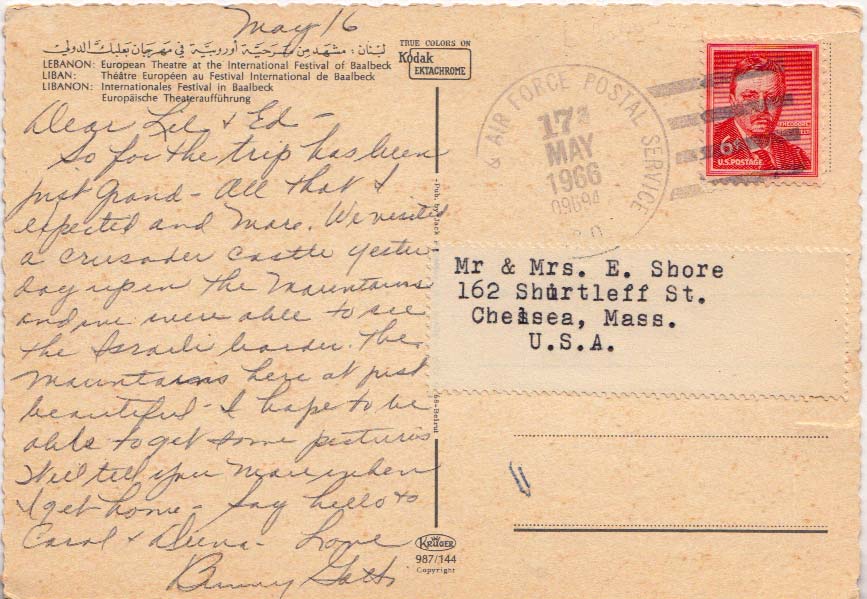 May 16
لبنان : مشهد من مسرحية أوروبية في مهرجان بعلبك الدولي
LEBANON: European Theatre at the International Festival of Baalbeck
LIBAN: Théâtre Européen au Festival International de Baalbeck
LIBANON: Internationales Festival in Baalbeck
Europäische Theateraufführung
TRUE COLORS ON
Kodak
EKTACHROME
Dear Lil & Ed -
So far the trip has been
just grand - All that I
expected and more. We visited
a crusader castle yester
day up in the Mountains
and we were able to see
the Israeli border. The
Mountains here at just
beautiful - I hope to be
able to get some pictures
Will tell you more when
I get home - Say hello to
Carol & - Love
Bunny
& AIR FORCE POSTAL SERVICE
17
MAY
1966
09694
6¢
U.S. POSTAGE
THEODORE
Pub. by Jack
Beirut
Mr & Mrs. E. Shore
162 Shurtleff St.
Chelsea, Mass.
U.S.A.
KRÜGER
987/144
Copyright